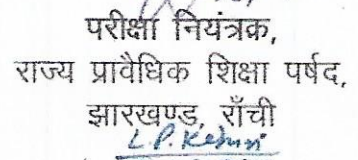 परीक्षा नियंत्रक,
राज्य प्रावैधिक शिक्षा पर्षद,
झारखण्ड, राँची
L.P.